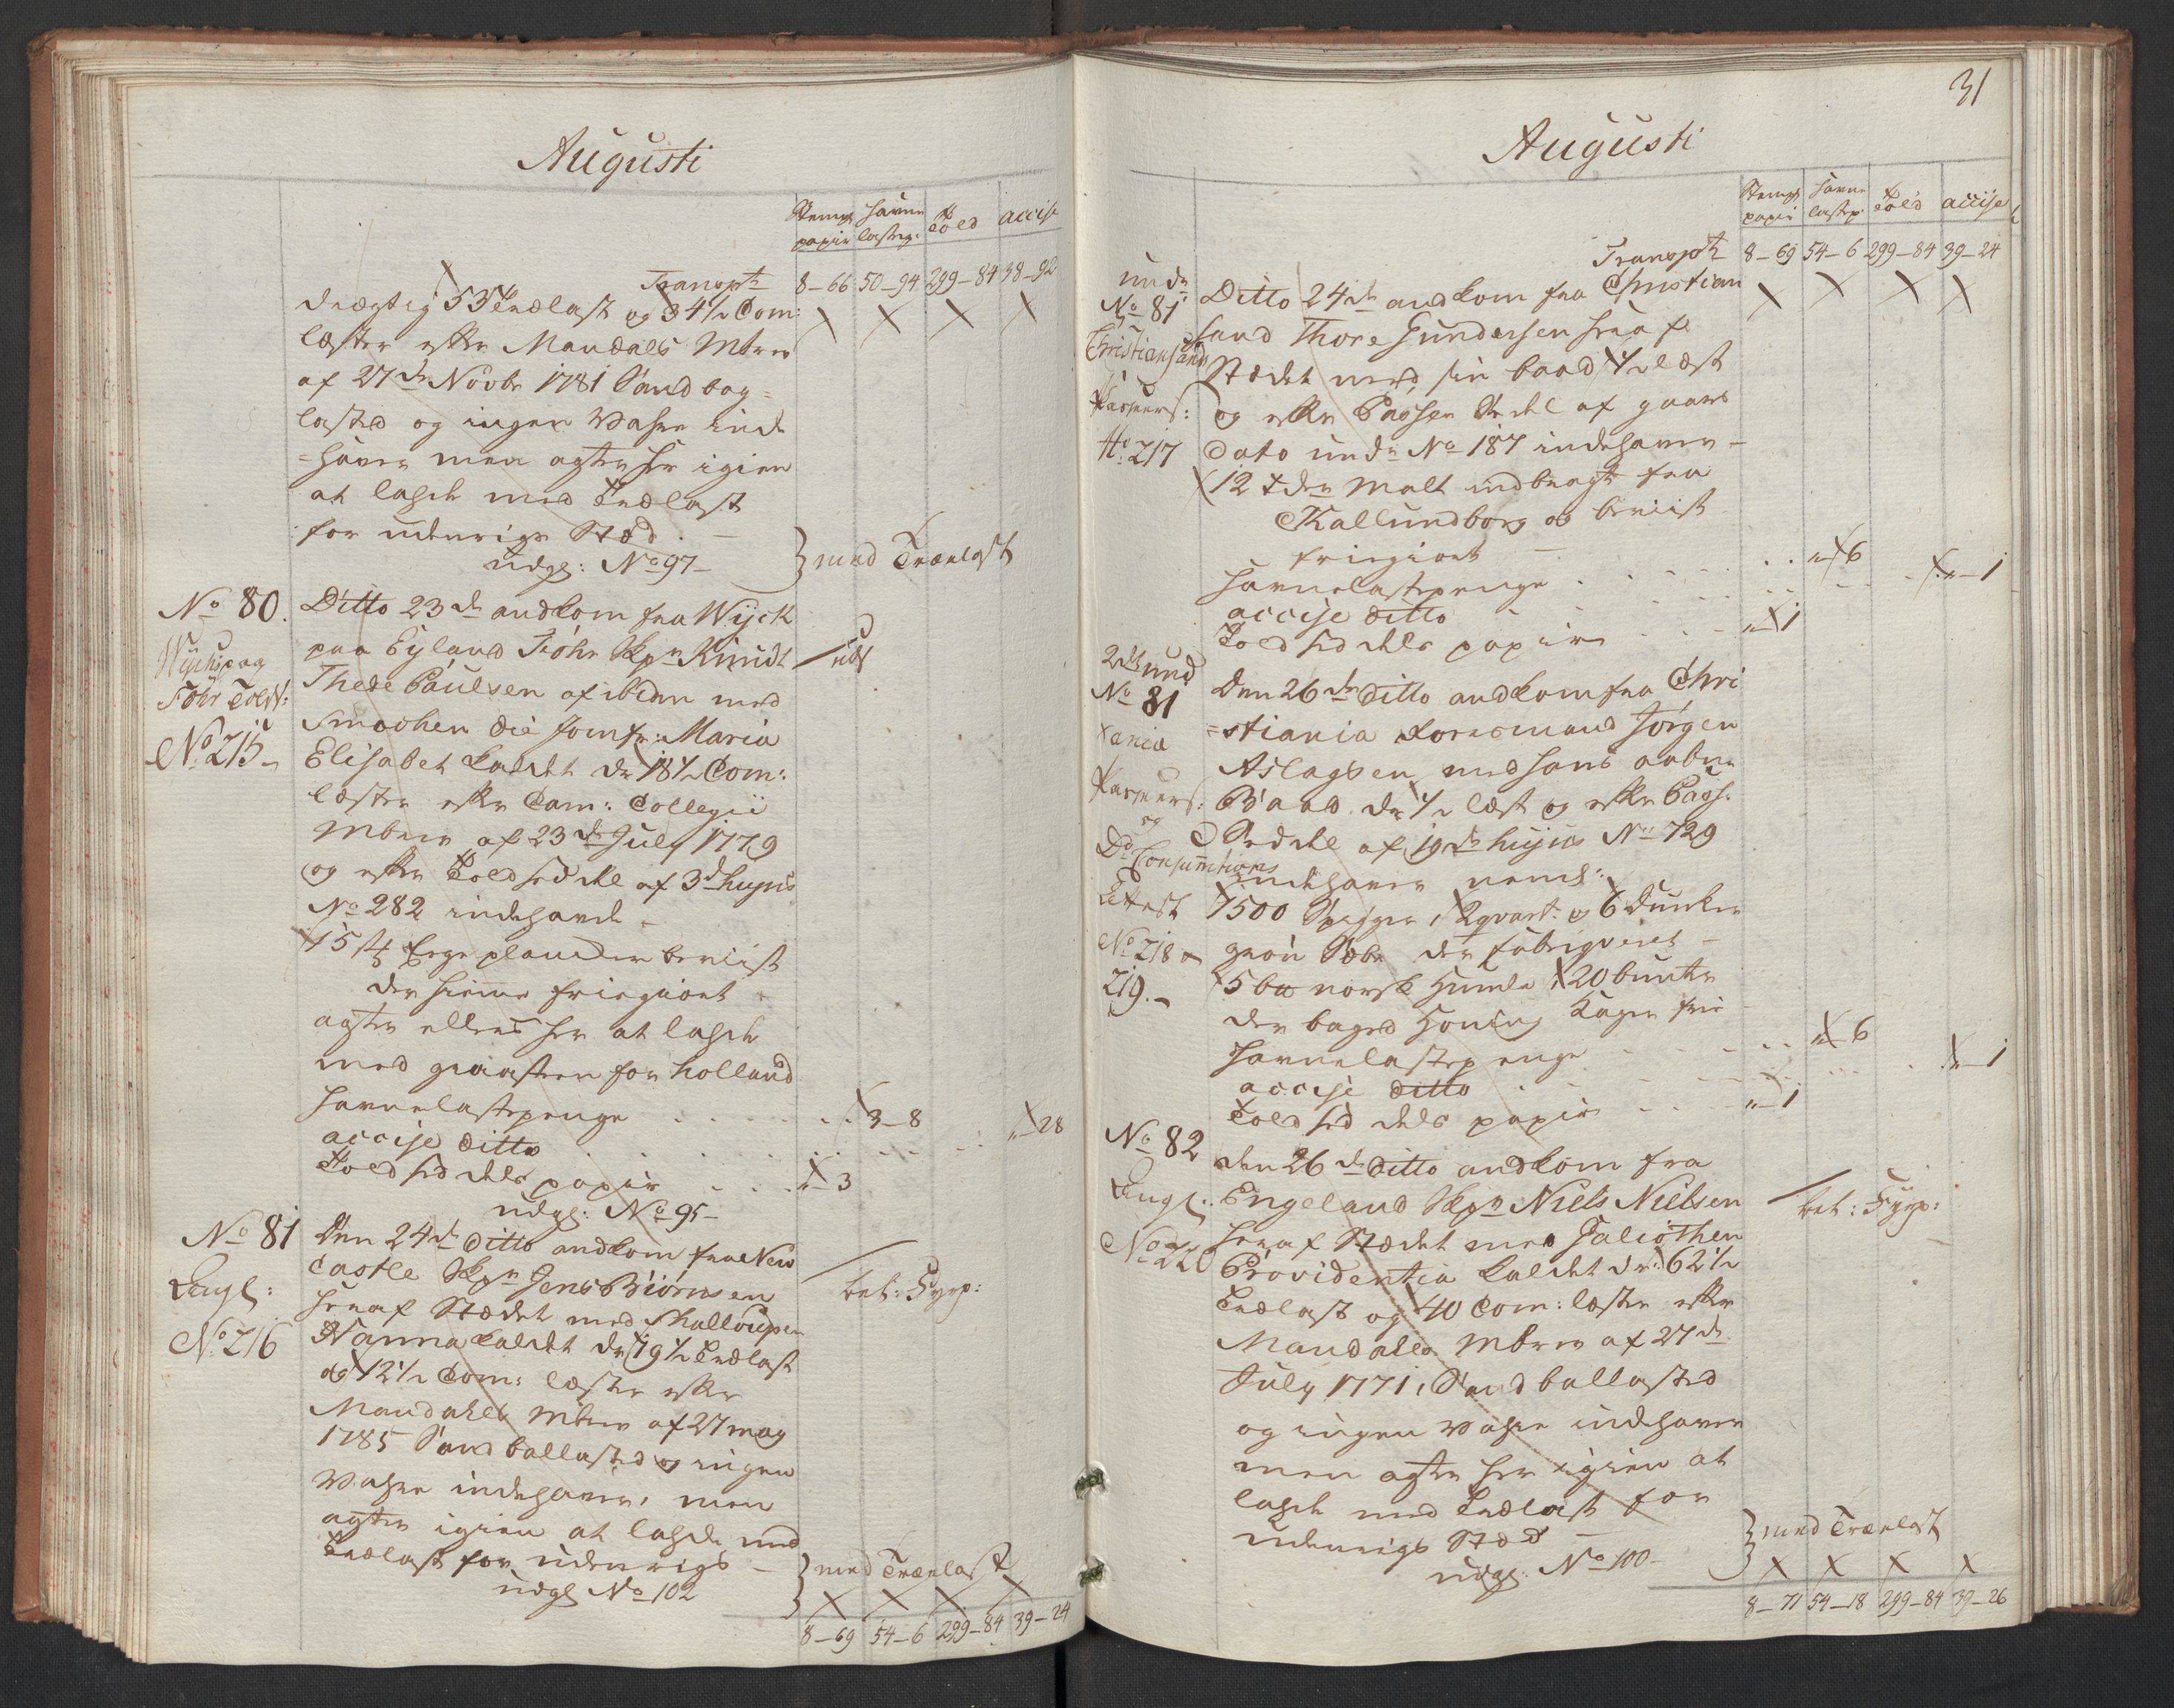 Augusti
Stempl papir
Havne lastep:
Told
accise
Transpt 8-66 50-94 299-84 38-92
drægtig 53 Trælast og 34 1/2 Com:
læster efter Mandals Mbrev
af 27de Novbr 1781 Sand bag=
lasted og ingen Vahre inde
=haver men agter her igien
at lahde med Trælast
for udenrigs Stæd. -
udgl: No 97 -
med Trælast
No 80.
Wyck paa
Föhr Tolds:
No 215
Ditto 23de andkom fra Wyck
paa Eyland Föhr Skpr Knudt
Thede Paulsen af ibidem med
Smachen die Jomfr: Maria
Elisabet kaldet dr 18 1/2 Com:
læster efter Cam: Collegii
Mbrev af 23de July 1779
og efter Told seddel af 3d hujus
No 282 indehavde -
15 beviist
der hiemme friegiort
agter ellers her at lahde
med for Holland
Havnelastepenge . . . . 3-8
accise ditto . . . . "-28
Told seddels papir . . . "-3
udgl: No 95 -
ud
No 81
Engl:
No 216
Den 24de ditto andkom fra New
castle Skpr Jens Biörnsen
heraf Stædet med Skalloupen
Nanna kaldet dr 19 1/2 Trælast
og 12 1/2 Com: læster efter
Mandahls Mbrev af 27 may
1785 Sand ballasted og ingen
Vahre indehaver, men
agter igien at lahde med
Trælast for udenrigs -
udgl No 102
bet: Fyrp:
med Trælast
8-69 54-6 299-84 39-24
31
Augusti
Stempl papir
Havne lastep:
Told
accise
Transpt 8-69 54-6 299-84 39-24
under
No 81
Christiansands
Passeers:
No 217
Ditto 24de andkom fra Christian
sand Thore Gundersen her af
Stædet med sin baad 1/2 læst
og efter Passeer Sedel af gaars
Dato under No 187 indehaver -
12 Tdr Malt indbragt fra
Kallundborg og beviist
friegiort -
Havnelastepenge . . . . "-6
accise ditto . . . . "-1
Told seddels papir . . . "-1
2det und
No 81
Xania
Passeers:
og
Do Consumtions
Attest
No 218 &
219. -
Den 26de ditto andkom fra Chri
=stiania Jörgen
Aslagsen med hans aabne
Baad dr 1/2 læst og efter Pass.
Seddel af 19de hujus No 729
indehaver neml:
7500 1 2 qvart: og 6 Dunker
grön Sæbe der fabriqveret -
5 norsk Humle, 20 bunter
der baged Honing Kager frie
Havnelastepenge . . . "-6
accise ditto . . . . "-1
Told seddels papir . . . "-1
No 82
Engl:
No 220
den 26de ditto andkom fra
Engeland Skpr Niels Nielsen
heraf Stædet med Galiothen
Providentia kaldet dr: 62 1/2
Trælast og 40 Com: læster efter
Mandahls Mbrev af 27de
July 1771, Sand ballasted
og ingen Vahre indehaver
men agter her igien at
lahde med Trælast for
udenrigs Stæd -
udgl: No 100 -
bet: Fyrp:
med Trælast
8-71 54-18 299-84 39-26